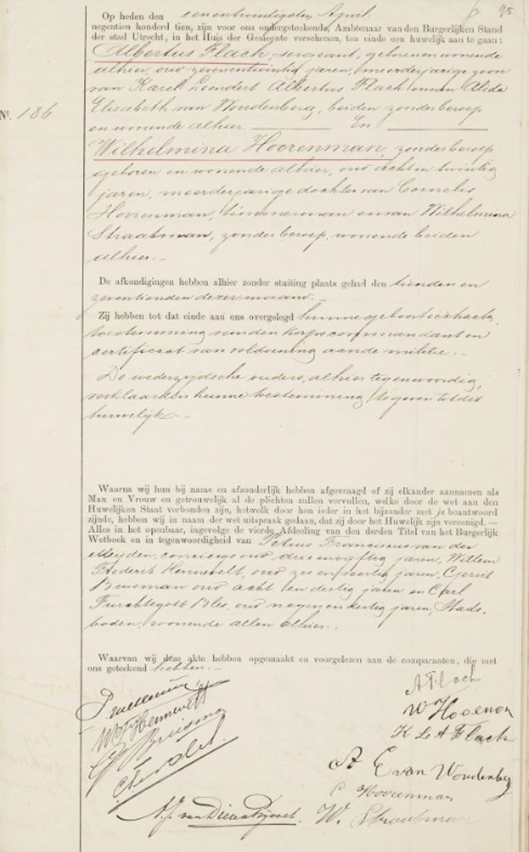 95
Op heden den een en twintigsten April
negentien honderd tien, zijn voor ons ondergeteekende, Ambtenaar van den Burgerlijken Stand
der stad Utrecht, in het Huis der Gemeente verschenen, ten einde een huwelijk aan te gaan:
Albertus Flach, sergeant, geboren en wonende
alhier, oud zevenentwintig jaren, meerderjarige zoon
van Karel Leendert Albertus Flach en van Aleida
Elisabeth van Woudenberg, beiden zonder beroep
en wonende alhier. En
No. 186
Wilhelmina Hoorenman, zonder beroep
geboren en wonende alhier, oud acht en twintig
jaren, meerderjarige dochter van Cornelis
Hoorenman, timmerman en van Wilhelmina
Straatman, zonder beroep, wonende beiden
alhier.
De afkondigingen hebben alhier zonder stuiting plaats gehad den tienden en
zeventienden dezer maand.
Zij hebben tot dat einde aan ons overgelegd hunne geboorteextracten,
toestemming van den korpscommandant en
certificaat van voldoening aan de militie.
De wederzijdsche ouders, alhier tegenwoordig,
verklaarden hunne toestemming te geven tot dit
huwelijk.
Waarna wij hun bij name en afzonderlijk hebben afgevraagd of zij elkander aannemen als
Man en Vrouw en getrouwelijk al de plichten zullen vervullen, welke door de wet aan den
Huwelijken Staat verbonden zijn, hetwelk door hen ieder in het bijzonder met ja beantwoord
zijnde, hebben wij in naam der wet uitspraak gedaan, dat zij door het Huwelijk zijn vereenigd. —
Alles in het openbaar, ingevolge de vierde Afdeeling van den derden Titel van het Burgerlijk
Wetboek en in tegenwoordigheid van Petrus Franciscus van der
Meijden, concierge oud drie en vijftig jaren, Willem
Frederik Hennevelt, oud zes en veertig jaren, Gerrit
Buisman oud acht en dertig jaren en Carl
Furchtegott Bles, oud negen en dertig jaren, Stads-
boden, wonende allen alhier.
Waarvan wij deze akte hebben opgemaakt en voorgelezen aan de comparanten, die met
ons geteekend hebben.
A Flach
W Hoorenman
K L A Flach
W F Hennevelt
A E van Woudenberg
C Hoorenman
W. Straatman